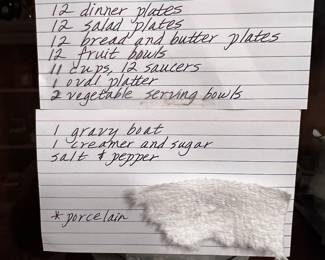 12 dinner plates
12 salad plates
12 bread and butter plates
12 fruit bowls
11 cups, 12 saucers
1 oval platter
2 vegetable serving bowls
1 gravy boat
1 creamer and sugar
salt & pepper
* porcelain